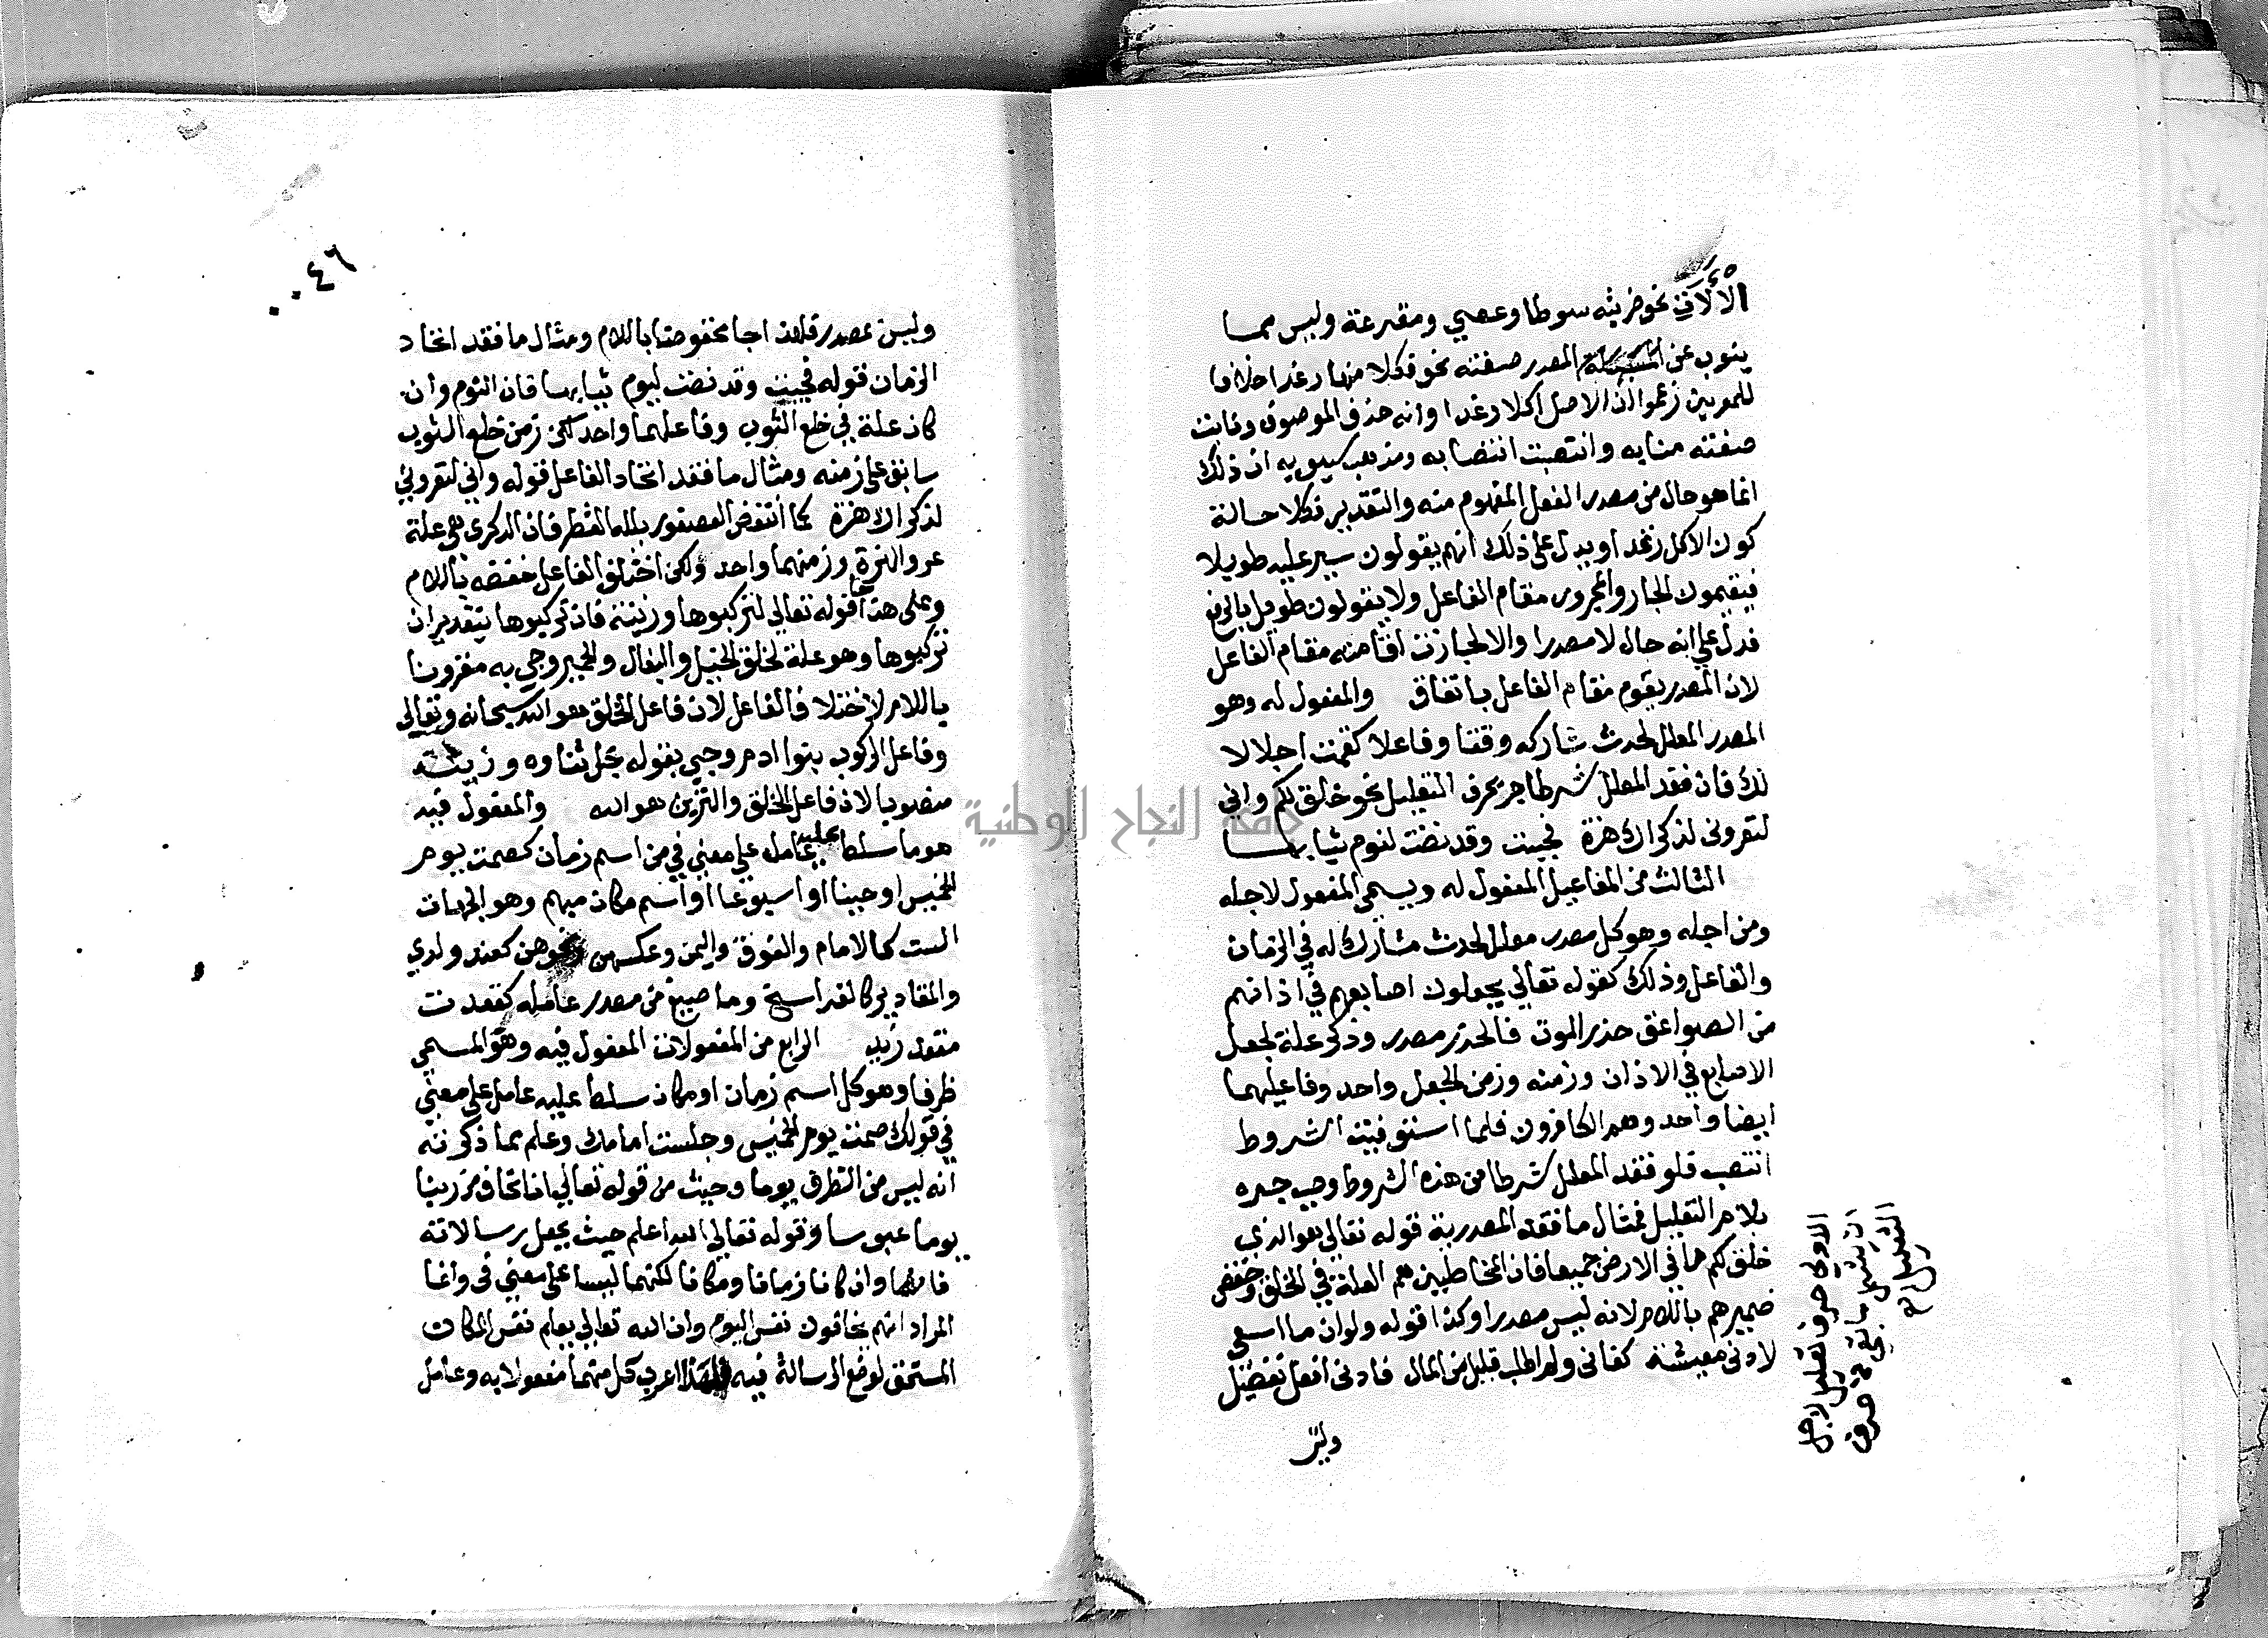 الآلات نحو ضربته سوطا وعصي ومقرعة وليس مما
ينوب عن المصدر صفته نحو فكلا منها رغدا خلافا
للمعربين زعموا ان الاصل اكلا رغدا وانه حذف الموصوف ونابت
صفته منابه وانتصبت انتصابه ومذهب سيبويه ان ذلك
انما هو حال من مصدر الفعل المفهوم منه والتقدير فكلا حالة
كون الاكل رغدا ويدل على ذلك انهم يقولون سير عليه طويلا
فيقيمون الجار والمجرور مقام الفاعل ولا يقولون طويل بالرفع
فدل على انه حال لا مصدرا والا لجازت اقامته مقام الفاعل
لان المصدر يقوم مقام الفاعل باتفاق والمفعول له وهو
المصدر المعلل لحدث شاركه وقتا وفاعلا كقمت اجلالا
لك فان فقد المعلل شرطا جر بحرف التعليل نحو خلق لكم واني
لتعروني لذكراك هزة فجيت وقد نضت لنوم ثيابها
الثالث من المفاعيل المفعول له ويسمى المفعول لاجله
ومن اجله وهو كل مصدر معلل لحدث مشارك له في الزمان
والفاعل وذلك كقوله تعالى يجعلون اصابعهم في اذانهم
من الصواعق حذر الموت فالحذر مصدر وذكر علة لجعل
الاصابع في الاذان وزمنه وزمن الجعل واحد وفاعلهما
ايضا واحد وهم الكافرون فلما استوفيت الشروط
انتصب فلو فقد المعلل شرطا من هذه الشروط وجب جره
بلام التعليل فمثال ما فقد المصدرية قوله تعالى هو الذي
خلق لكم ما في الارض جميعا فان المخاطبين هم العلة في الخلق وخفض
ضميرهم باللام لانه ليس مصدرا وكذا قوله ولو ان ما اسعى
لادنى معيشة كفاني ولم اطلب قليل من المال فادنى افعل تفضيل
وليس
الاولى حرف تعليل لاجل
ان يشمل ما بقي من حروف
التعليل
٤٦
وليس بمصدر فلهذا جا مخفوضا باللام ومثال ما فقد اتحاد
الزمان قوله فجيت وقد نضت لنوم ثيابها فان النوم وان
كان علة في خلع الثوب وفاعلهما واحد لكن زمن خلع الثوب
سابق على زمنه ومثال ما فقد اتحاد الفاعل قوله واني لتعروني
لذكراك هزة كما انتفض العصفور بلله القطر فان الذكرى هي علة
عرو الهزة وزمنهما واحد ولكن اختلف الفاعل فخفضه باللام
وعلى هذا قوله تعالى لتركبوها وزينة فان تركبوها بتقدير ان
تركبوها وهو علة لخلق الخيل والبغال والحمير وجي به مقرونا
باللام لاختلاف الفاعل لان فاعل الخلق هو الله سبحانه وتعالى
وفاعل الركوب بنوا ادم وجي بقوله جل ثناوه وزينة
منصوبا لان فاعل الخلق والتزين هو الله والمفعول فيه
هو ما سلط عليه عامل على معنى في من اسم زمان كصمت يوم
الخميس او حينا او اسبوعا او اسم مكان مبهم وهو الجهات
الست كالامام والفوق واليمن وعكسهن ونحوهن كعند ولدي
والمقادير كالفراسخ وما صيغ من مصدر عامله كقعدت
مقعد زيد الرابع من المفعولات المفعول فيه وهو المسمى
ظرفا وهو كل اسم زمان او مكان سلط عليه عامل على معنى
في قولك صمت يوم الخميس وجلست امامك وعلم مما ذكرته
انه ليس من الظرف يوما وحيث من قوله تعالى انا نخاف من ربنا
يوما عبوسا وقوله تعالى الله اعلم حيث يجعل رسالاته
فانهما وان كانا زمانا ومكانا لكنهما ليسا على معنى في وانما
المراد انهم يخافون نفس اليوم وان الله تعالى يعلم نفس المكان
المستحق لوضع الرسالة فيه فلهذا اعرب كل منهما مفعولا به وعامل
جامعة النجاح الوطنية